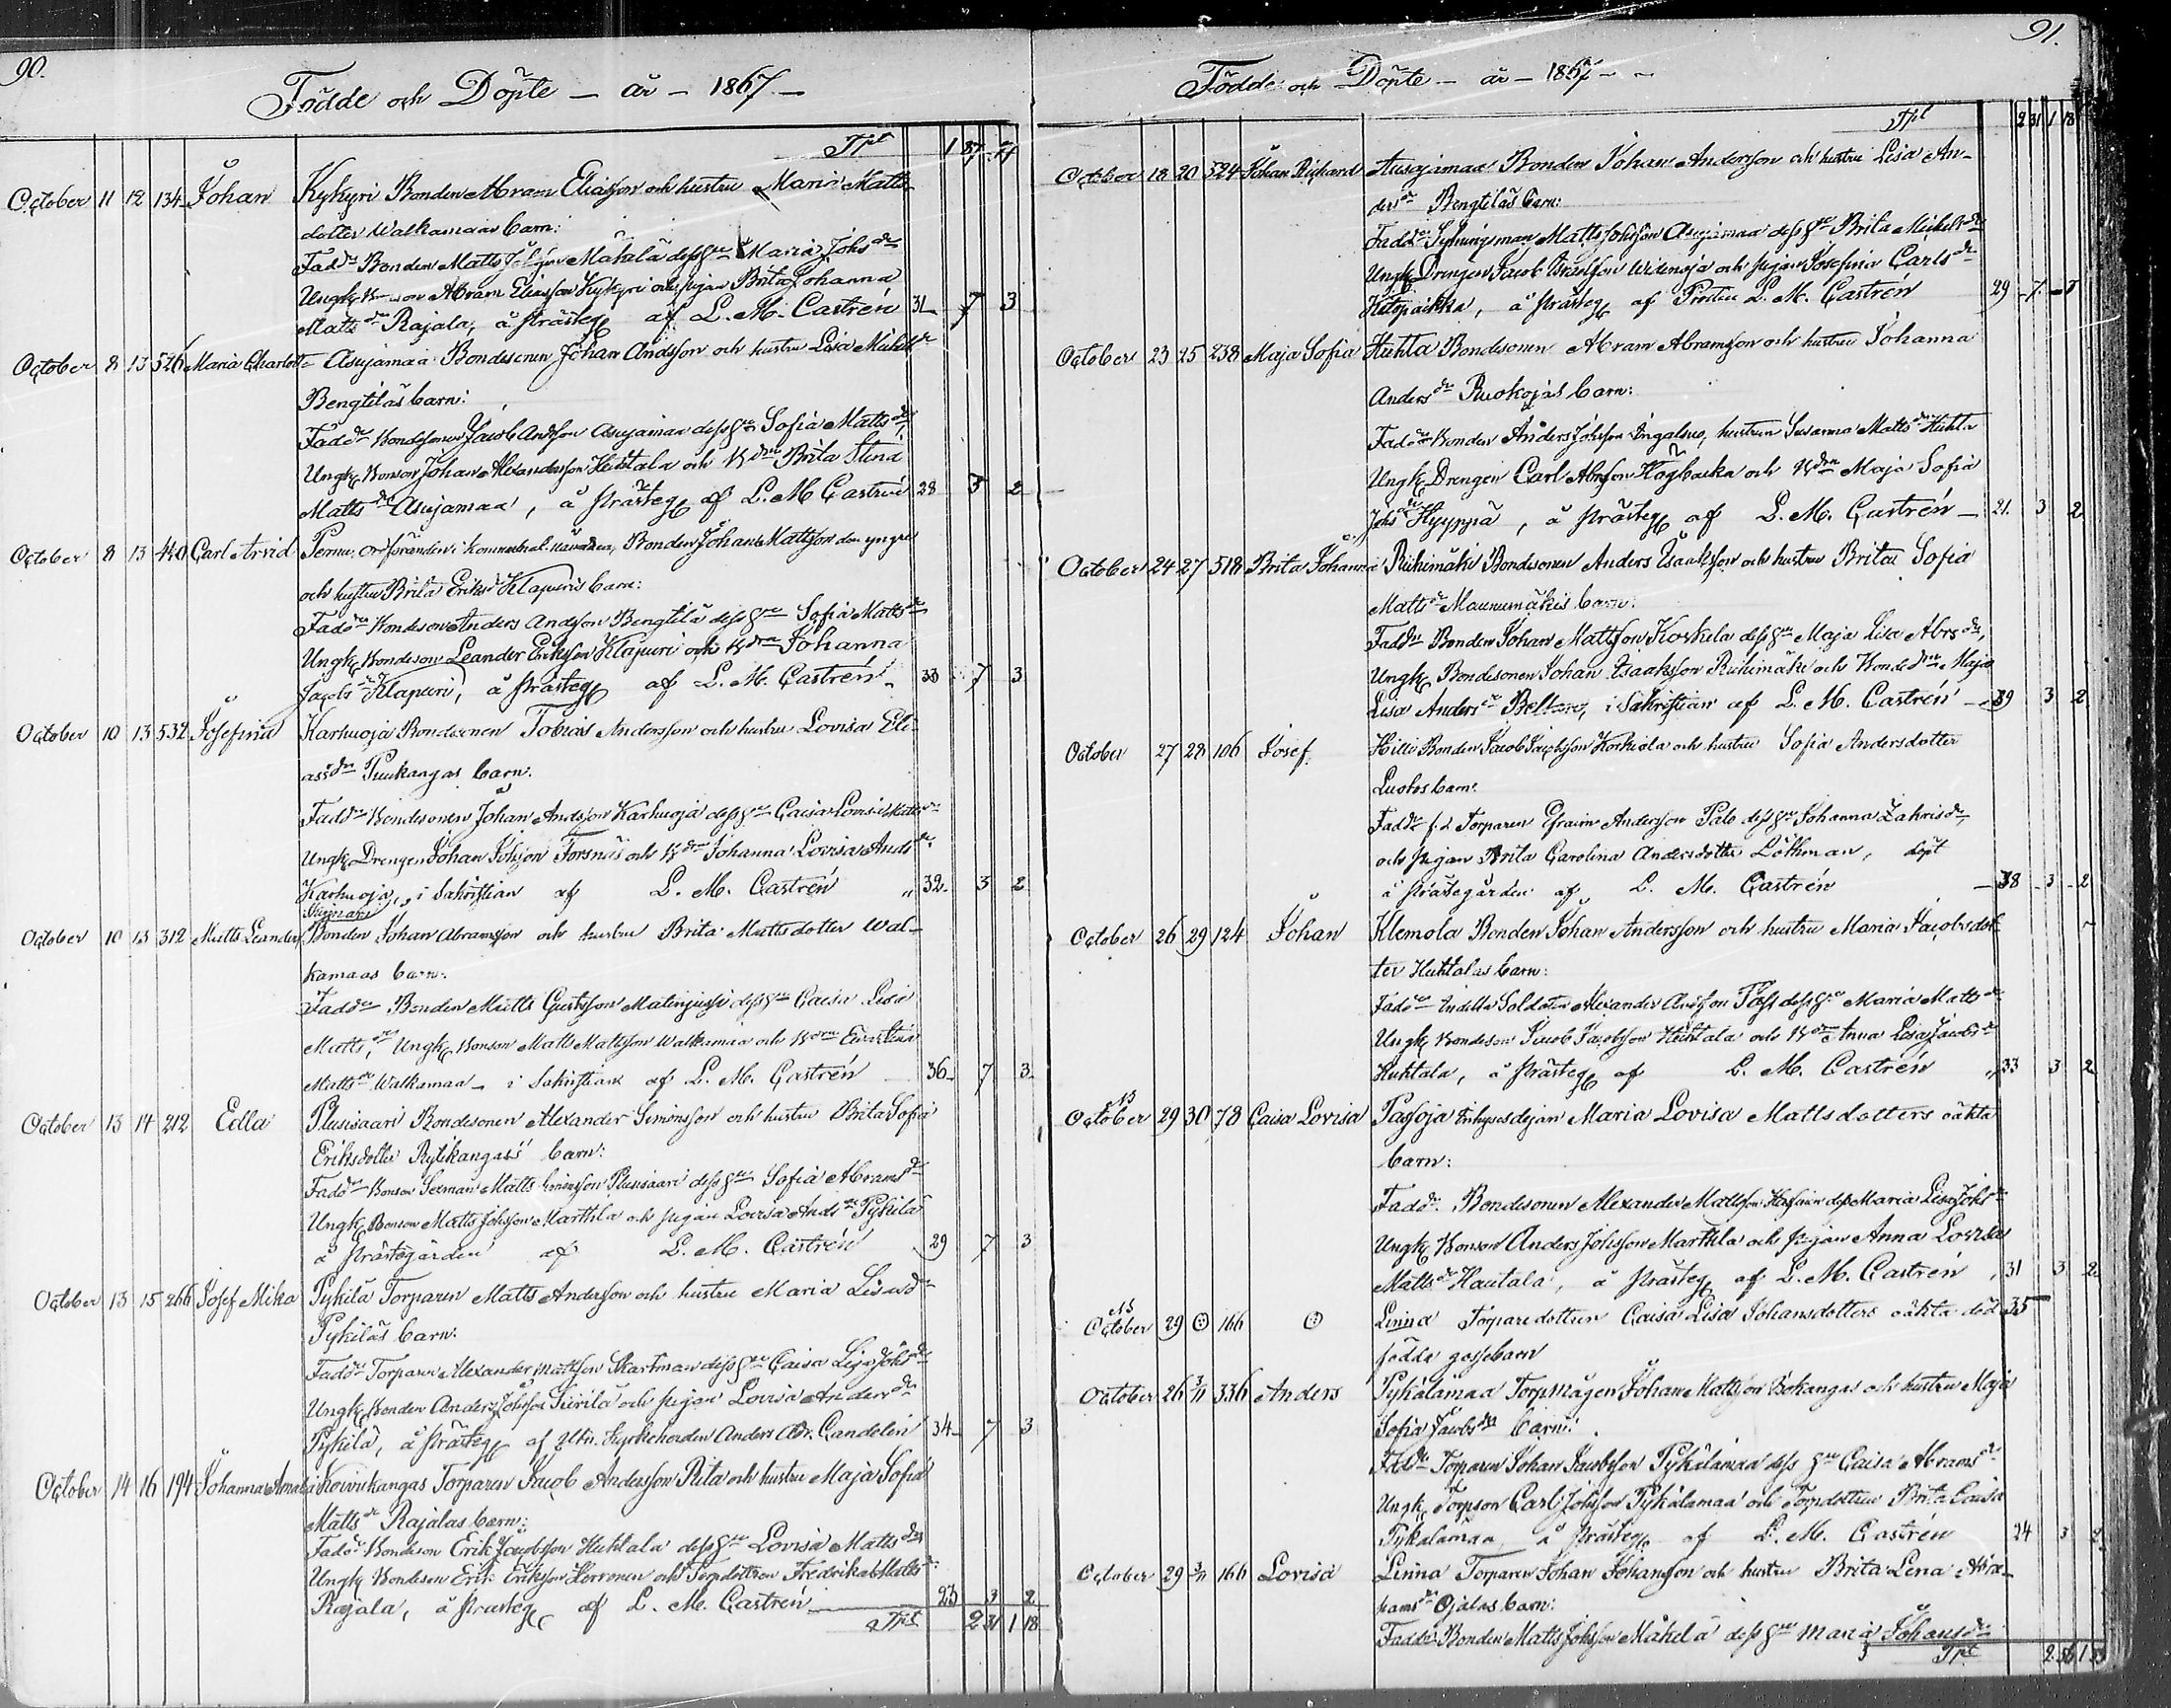 90.
Födde och Döpte – år – 1867 –
Tpt 1 87
October 11 12 134 Johan Kykyri Bonden Abram Eliasson och hustru Maria Matts
dotter Walkamaas barn:
Fadd Bonden Matts Johsson Mäkelä dess hu Maria Johs dr
Ungk Abram Eliasson Kykyri och pigan Brita Johanna
Matts dr Rajala, å Prästeg af L. M. Castrén 31 7 3
October 8 13 526 Maria Charlott Asujamaa Bondesonen Johan Andsson och hustru Lisa Michels dr
Bengtiläs barn:
Fadd Bondesonen Jacob Andsson Asujamaa dess hu Sofia Matts dr,
Ungk Bonson Johan Alexandersson Huhtala och B dn Brita Stina
Matts dr Asujamaa, å Prästeg af L. M. Castrén 28 3 2
October 8 13 440 Carl Arvid Pernu, Ordföranden i kommunal-nämnden, Bonden Johan Mattsson den yngre
och hustru Brita Eriks Klapuris barn:
Fadd Bondeson Anders Andsson Bengtilä dess hu Sofia Matts dr
Ungk Bondeson Leander Eriksson Klapuri och B dn Johanna
Jacobs dr Klapuri, å Prästeg af L. M. Castrén 33 7 3
October 10 13 532 Josefina Karhuoja Bondesonen Tobias Andersson och hustru Lovisa Eli-
as dr Puukangas barn.
Fadd Bondesonen Johan Andsson Karhuoja dess hu Caisa Lovisa Matts dr
Ungk Drengen Johan Johsson Forsnäs och B dn Johanna Lovisa Ands dr
Karhuoja, i Sakristian af L. M. Castrén 32 3 2
October 10 13 312 Matts Leander Bonden Johan Abramsson och hustru Brita Mattsdotter Wal-
kamaas barn:
Fadd Bonden Matts Gustsson Matinjussi dess hu Caisa Lisa
Matts dr, Ungk Bonson Matts Mattsson Walkamaa och B dn Eva Stina
Matts dr Walkamaa – i Sakristian af L. M. Castrén 36 7 3
October 13 14 212 Edla Plusisaari Bondesonen Alexander Simonsson och hustru Brita Sofia
Eriksdotter Rytikangas's barn:
Fadd Bonson Seeman Matts Simonsson Plusisaari dess hu Sofia Abrams dr
Ungk Bonson Matts Johsson Marttila och pigan Lovisa Ands dr Pykilä
å Prästegården af L. M. Castrén 29 7 3
October 13 15 266 Josef Mika Pykilä Torparen Matts Andersson och hustru Maria Lisa dr
Pykiläs barn:
Fadd Torparen Alexander Mattsson Skartman dess hu Caisa Lisa Johs dr
Ungk Bonden Anders Johsson Siirilä och pigan Lovisa Anders dr
Pykilä, å Prästeg af Utn. Kyrkoherden Anders Adr. Candelin 34 7 3
October 14 16 194 Johanna Amalia Koivukangas Torparen Jacob Andersson Rita och hustru Maja Sofia
Matts dr Rajalas barn:
Fadd Bondeson Erik Jacobsson Huhtala dess hu Lovisa Matts dr
Ungk Bondeson Erik Eriksson Herronen och Torpdottren Fredrika Matts dr
Rajala, å Prästeg af L. M. Castrén 23 3 2
Tpt 2 31 1 18
91.
Födde och Döpte – år – 1867 –
Tpt 2 31 1 18
October 18 20 524 Johan Richard Asujamaa Bonden Johan Andersson och hustru Lisa An-
ders dr Bengtiläs barn:
Fadd Syningsman Matts Johsson Asujamaa dess hu Brita Michels dr
Ungk Drengen Jacob Israelsson Widenoja och pigan Josefina Carls dr
Ketopaikka, å Prästeg af Prosten L. M. Castrén 29 7
October 23 25 238 Maja Sofia Huhta Bondesonen Abram Abramsson och hustru Johanna
Anders dr Ruokojas barn:
Fadd Bonden Anders Johsson Ingalsuo, hustrun Susanna Matts dr Huhta
Ungk Drengen Carl Abrsson Högbacka och B dn Maja Sofia
Johs dr Hyyppä, å Prästeg af L. M. Castrén 21 3 2
October 24 27 518 Brita Johanna Riihimäki Bondesonen Anders Isaaksson och hustru Brita Sofia
Matts dr Maunumäkis barn:
Fadd Bonden Johan Mattsson Koskela dess hu Maja Lisa Abrs dr,
Ungk Bondesonen Johan Isaaksson Riihimäki och Bonde dn Maja
Lisa Anders dr i Sakristian af L. M. Castrén 39 3 2
October 27 28 106 Josef Hilli Bonden Jacob Jacobsson Korkiola och hustru Sofia Andersdotter
Luotos barn:
Fadd f.d. Torparen Efraim Andersson Palo dess hu Johanna Zakris dr,
och pigan Brita Carolina Andersdotter Löthman, döpt
å Prästegården af L. M. Castrén 38 3 2
October 26 29 124 Johan Klemola Bonden Johan Andersson och hustru Maria Jacobsdot-
ter Huhtalas barn:
Fadd Indelta Soldaten Alexander Andsson Fast dess hu Maria Matts dr
Ungk Bondeson Jacob Jacobsson Huhtala och B dn Anna Lisa Jacobs dr
Huhtala, å Prästeg af L. M. Castrén 33 3 2
October 29 30 78 Caisa Lovisa Pasoja Inhysesdejan Maria Lovisa Mattsdotters oäkta
barn:
Fadd Bondesonen Alexander Mattsson dess Maria Lisa Johs dr
Ungk Bonson Anders Johsson Marttila och pigan Anna Lovisa
Matts dr Hautala, å Prästeg af L. M. Castrén 31 3 2
October 29 166 Linna Torparedottren Caisa Lisa Johansdotters oäkta död 35
födda gossebarn
October 26 3/11 336 Anders Pykälämaa Torpmågen Johan Mattsson Isokangas och hustru Maja
Sofia Jacobs dr barn:
Fadd Torparen Johan Jacobsson Pykälämaa dess hu Caisa Abrams dr
Ungk Torpson Carl Johsson Pykälämaa och Torpdottren Brita Caisa
Pykälämaa, å Prästeg af L. M. Castrén 24 3 2
October 29 3/11 166 Lovisa Linna Torparen Johan Johansson och hustru Brita Lena Abra-
hams dr Ojalas barn:
Fadd Bonden Matts Johsson Mäkelä dess hu Maria Johans dr
Tpt 2 56 1